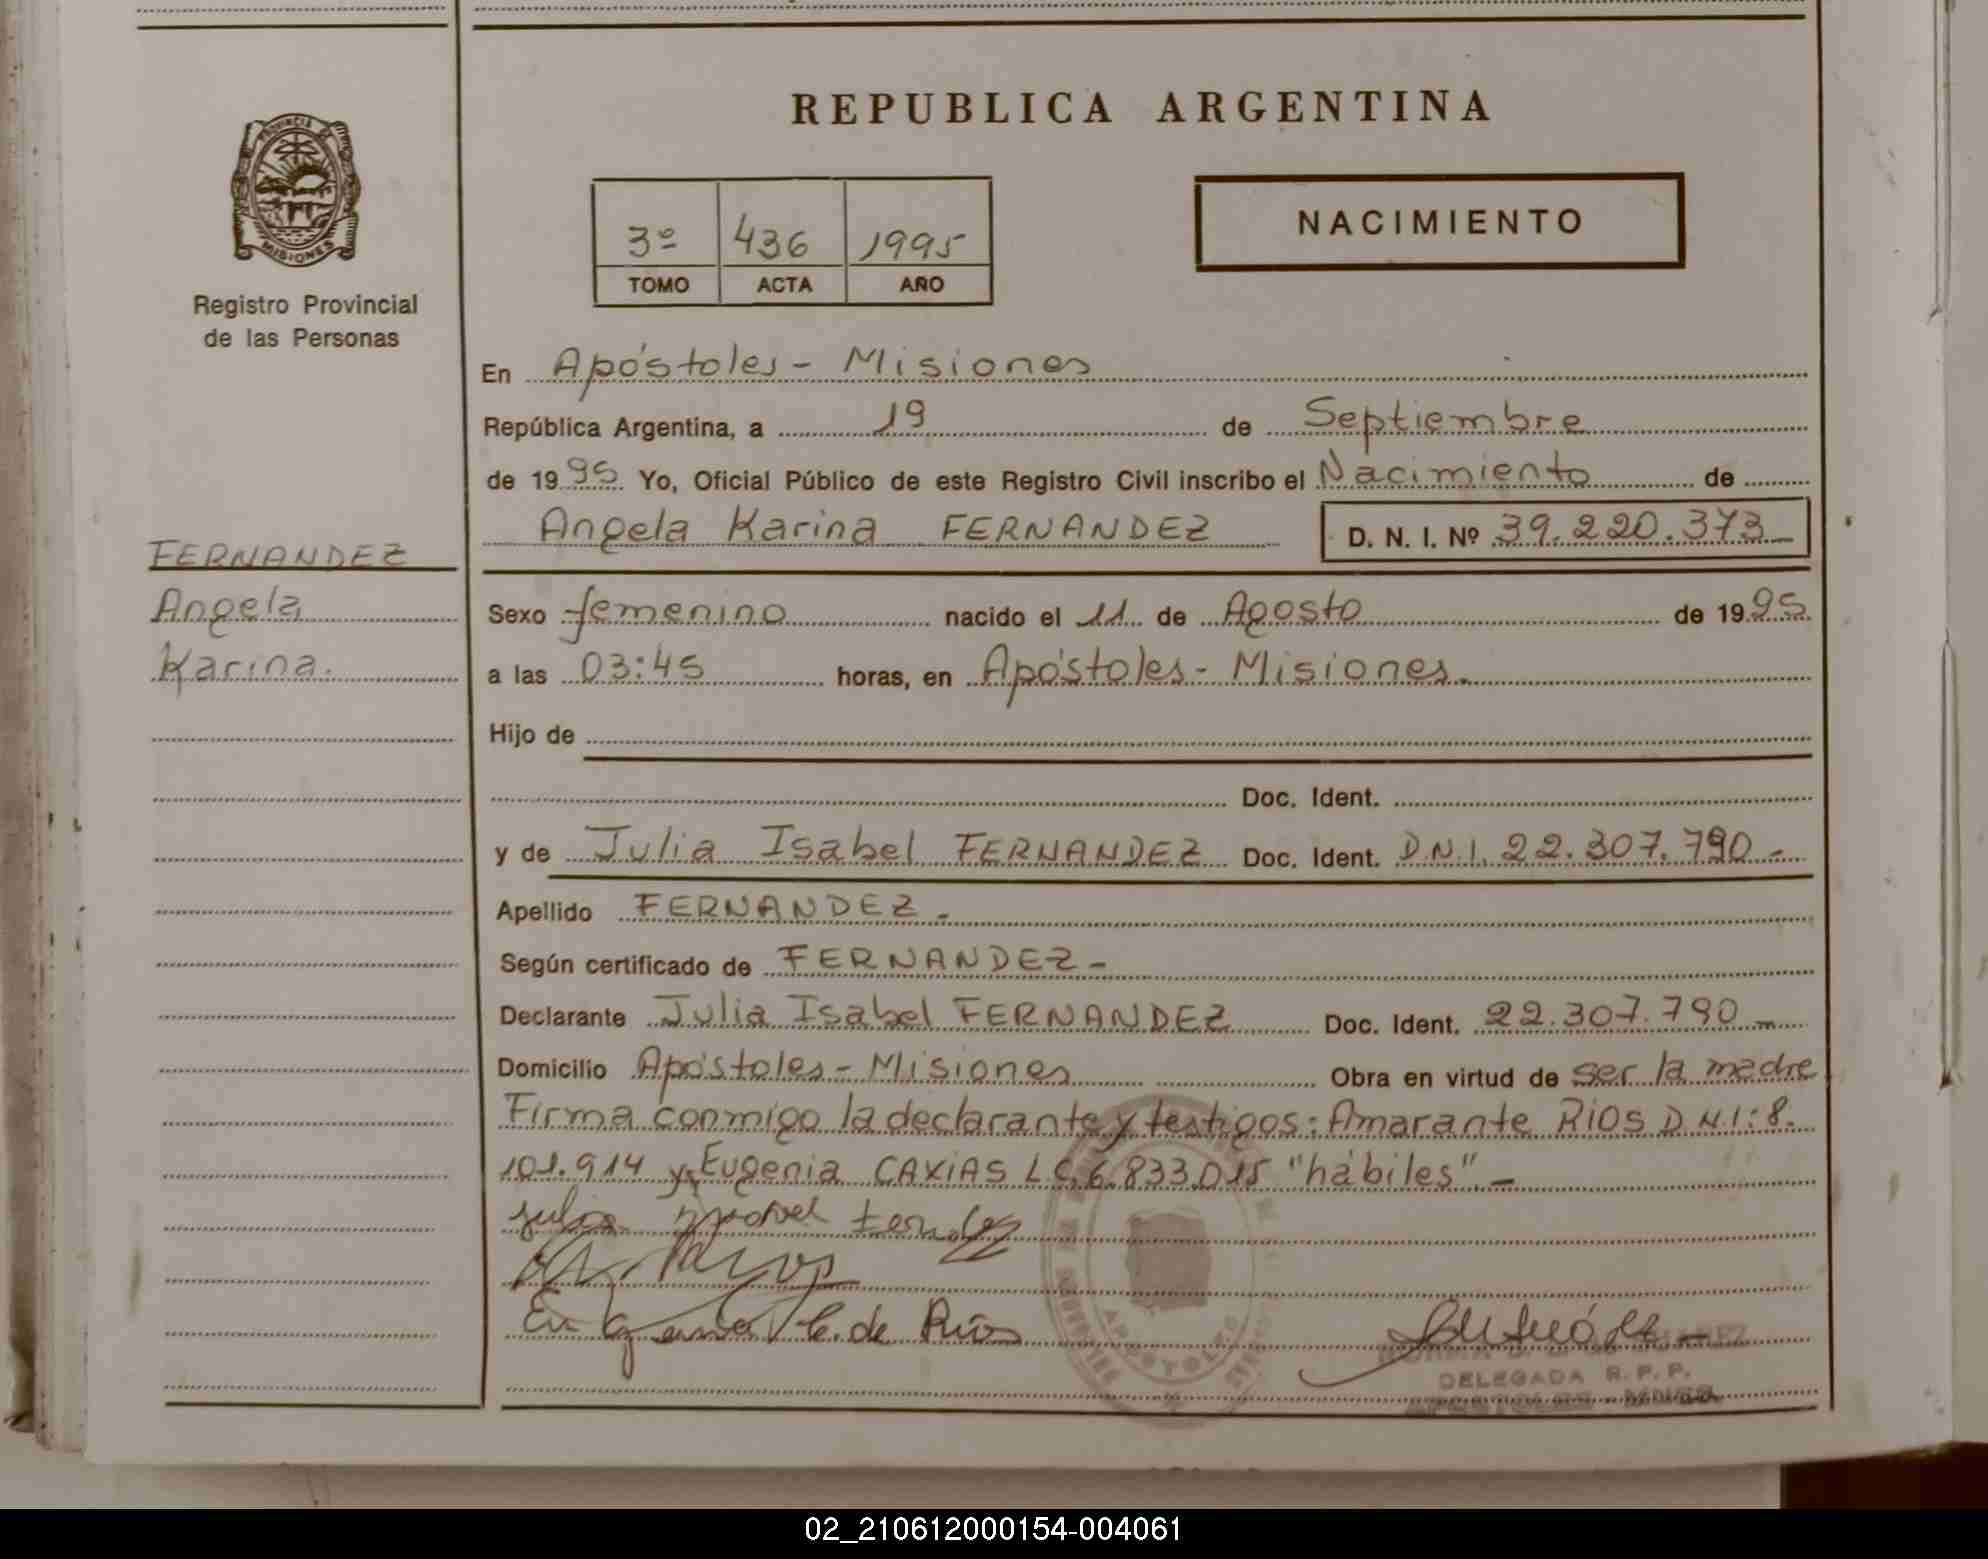 REPUBLICA ARGENTINA
PROVINCIA DE
MISIONES
Registro Provincial
de las Personas
3º 436 1995
TOMO ACTA AÑO
NACIMIENTO
En Apóstoles - Misiones
República Argentina, a 19 de Septiembre
de 1995 Yo, Oficial Público de este Registro Civil inscribo el Nacimiento de
Angela Karina FERNANDEZ D. N. I. Nº 39.220.373
FERNANDEZ
Angela
Karina.
Sexo femenino nacido el 11 de Agosto de 1995
a las 03:45 horas, en Apóstoles - Misiones.
Hijo de
Doc. Ident.
y de Julia Isabel FERNANDEZ Doc. Ident. D.N.I. 22.307.790 -
Apellido FERNANDEZ -
Según certificado de FERNANDEZ -
Declarante Julia Isabel FERNANDEZ Doc. Ident. 22.307.790 -
Domicilio Apóstoles - Misiones Obra en virtud de ser la madre
Firma conmigo la declarante y testigos: Amarante RIOS D.N.I: 8.
101.914 y Eugenia CAXIAS L.C. 6.833.015 "hábiles" -
Eugenia C. de Rios
DELEGADA R. P. P.
02_210612000154-004061